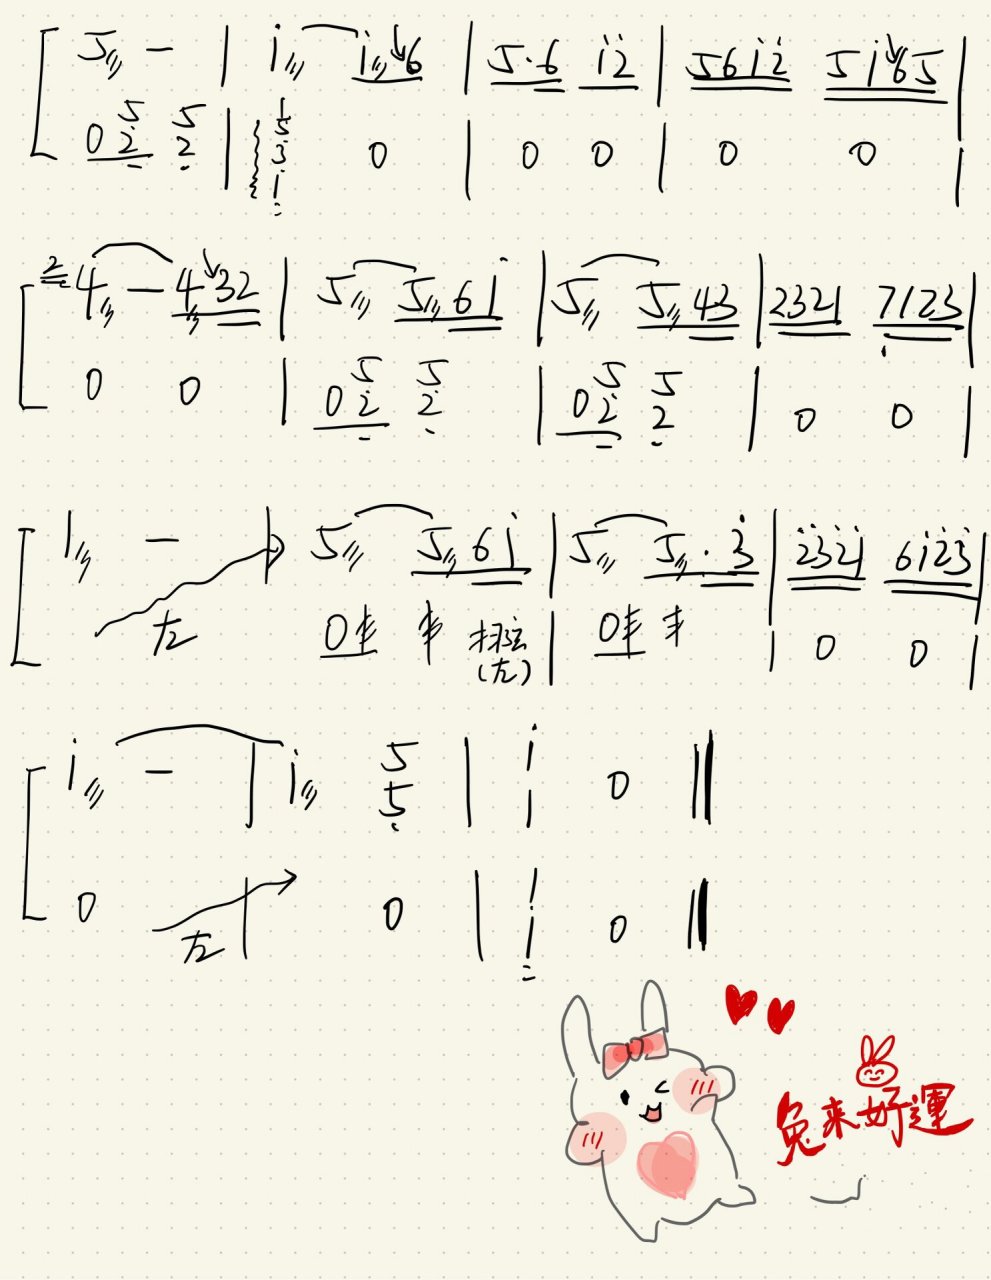 5 - | i i 6 | 5·6 i 2 | 5 6 i 2 5 i 6 5 |
0 5 2 5 2 | 1 5 3 1 0 | 0 0 | 0 0 |
2 4 - 4 3 2 | 5 5 6 i | 5 5 4 3 | 2 3 2 1 7 1 2 3 |
0 0 | 0 5 2 5 2 | 0 5 2 5 2 | 0 0 |
1 - | 5 5 6 i | 5 5 · 3 | 2 3 2 1 6 i 2 3 |
左 0 0 | 0 0 |
(左)
i - | i 5 5 | i 1 0 ‖
0 左 | 0 | i i 0 ‖
兔来好運